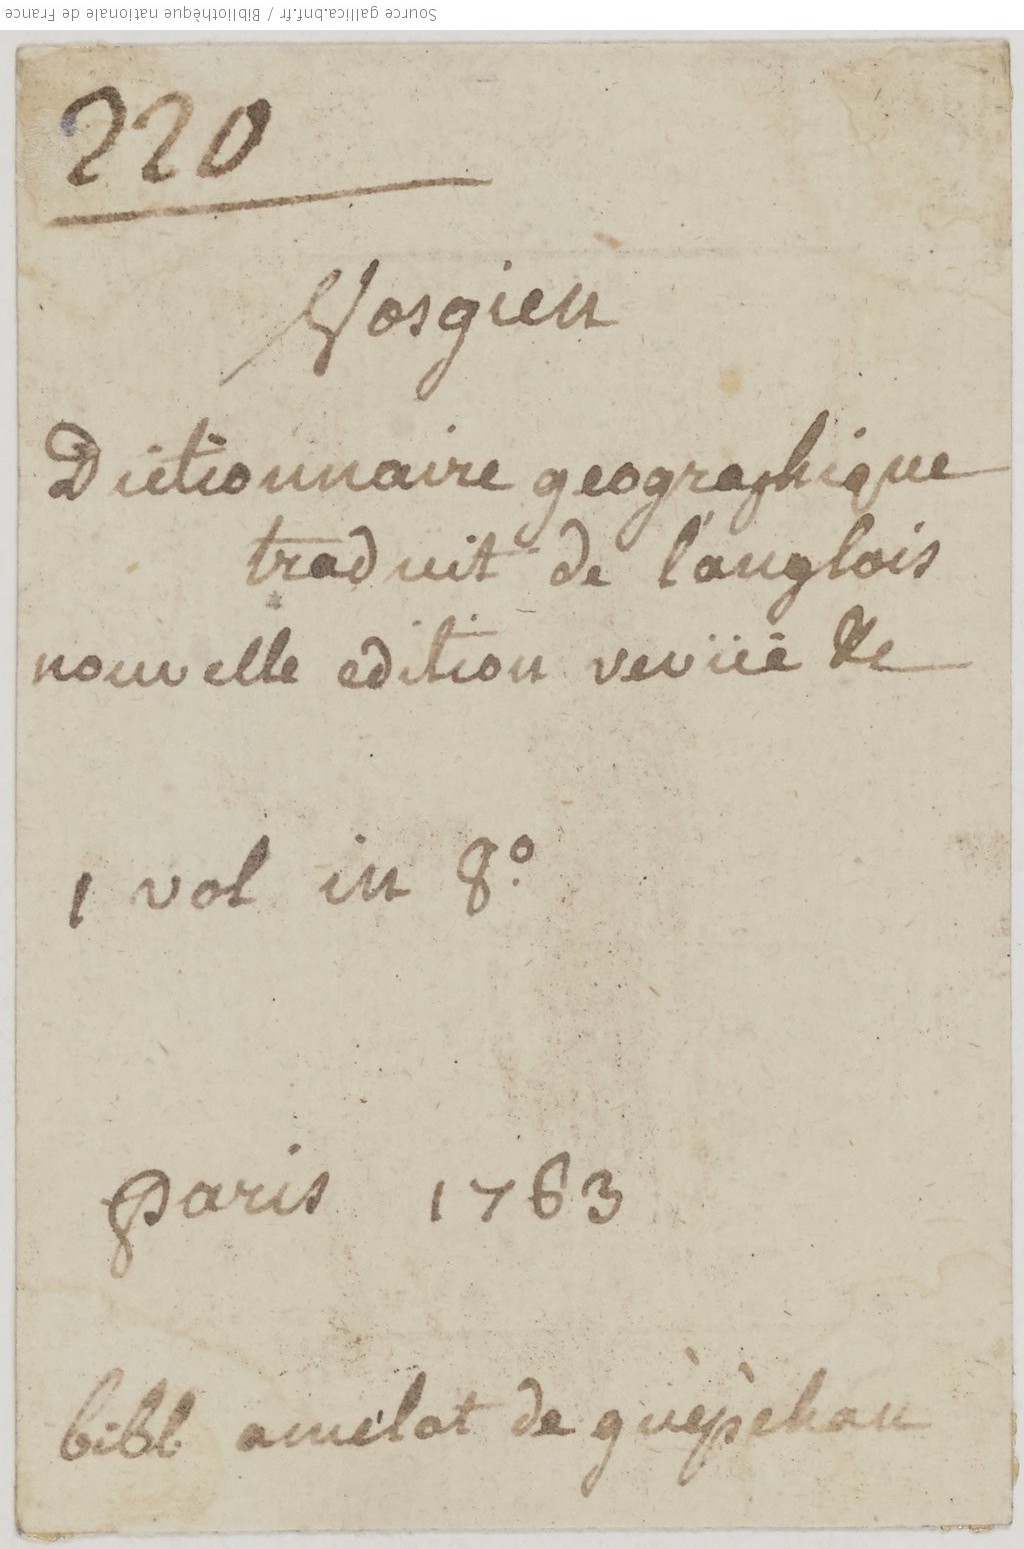 Source gallica.bnf.fr / Bibliothèque nationale de France
220
Vosgien
Dictionnaire geographique
traduit de l'anglois
nouvelle edition revüë &c
1 vol in 8.º
paris 1763
bibl amélot de guépéhan